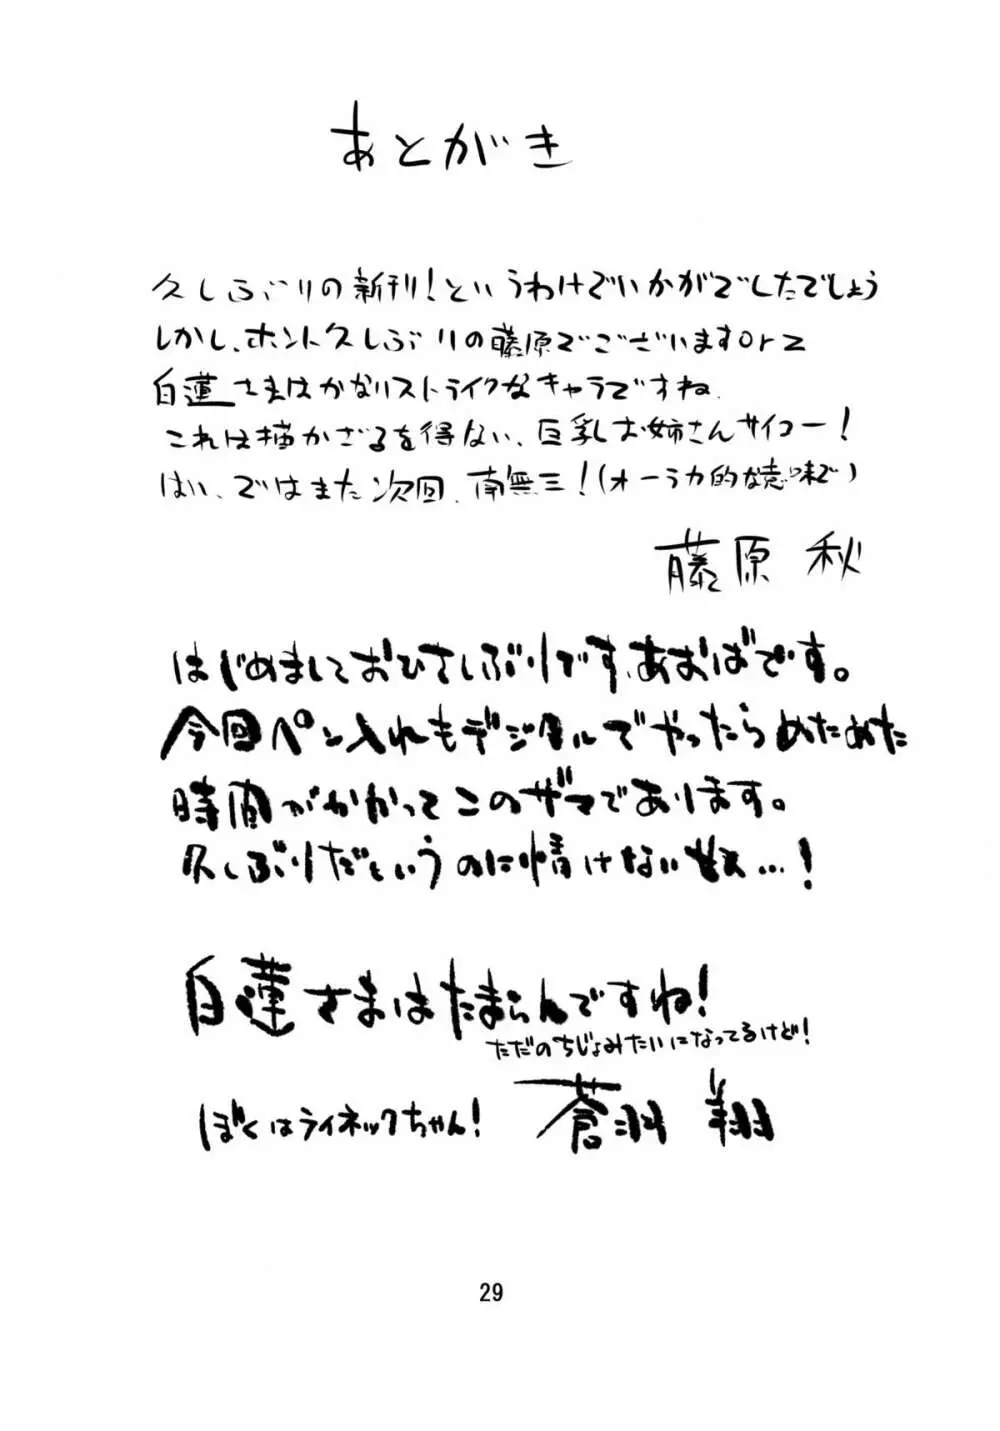 あとがき
久しぶりの新刊！というわけでいかがでしたでしょう
しかし、ホント久しぶりの藤原でございますorz
白蓮さまはかなりストライクなキャラですね
これは描かざるを得ない、巨乳お姉さんサイコー！
はい、ではまた次回、南無三！(オーラ力的な意味で)
藤原 秋
はじめましておひさしぶりです、あおばです。
今回ペン入れもデジタルでやったらめためた
時間がかかってこのザマであります。
久しぶりだというのに情けない…！
白蓮さまはたまらんですね！
ただのちじょみたいになってるけど！
ぼくはライネックちゃん！
蒼羽 翔
29